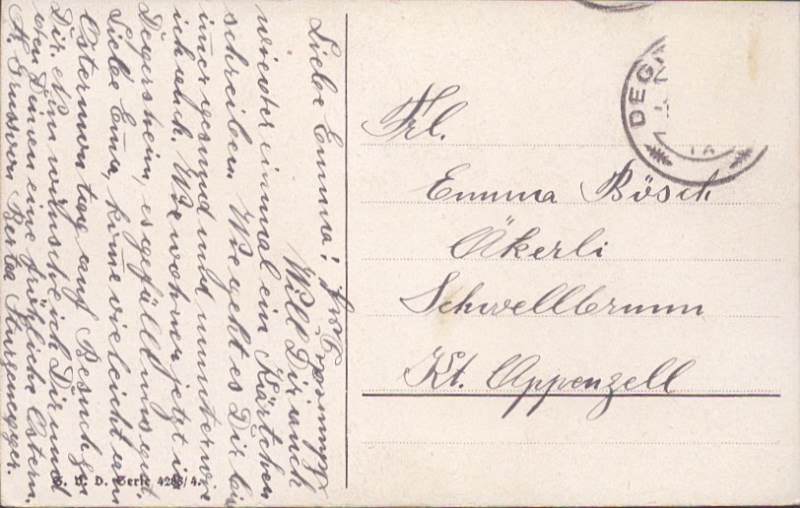 Liebe Emma!
Will Dir auch
wieder einmal ein Kärtchen
schreiben. Wie geht es Dir bin
im̅er gesund und munter wie
ich auch. Wir wohnen jetzt in
Degersheim, es gefällt mir gut.
Liebe Em̅a, kom̅e vieleicht am
Ostermontag auf Besuch zu
Dir. Nun wünsche ich Dir und
den Deinen eine fröhliche Ostern.
H. Gruss von Berta Sturzenegger.
Frl.
Emma Bösch
Äkerli
Schwellbrunn
Kt. Appenzell
DEG
D. Serie 4263/4.